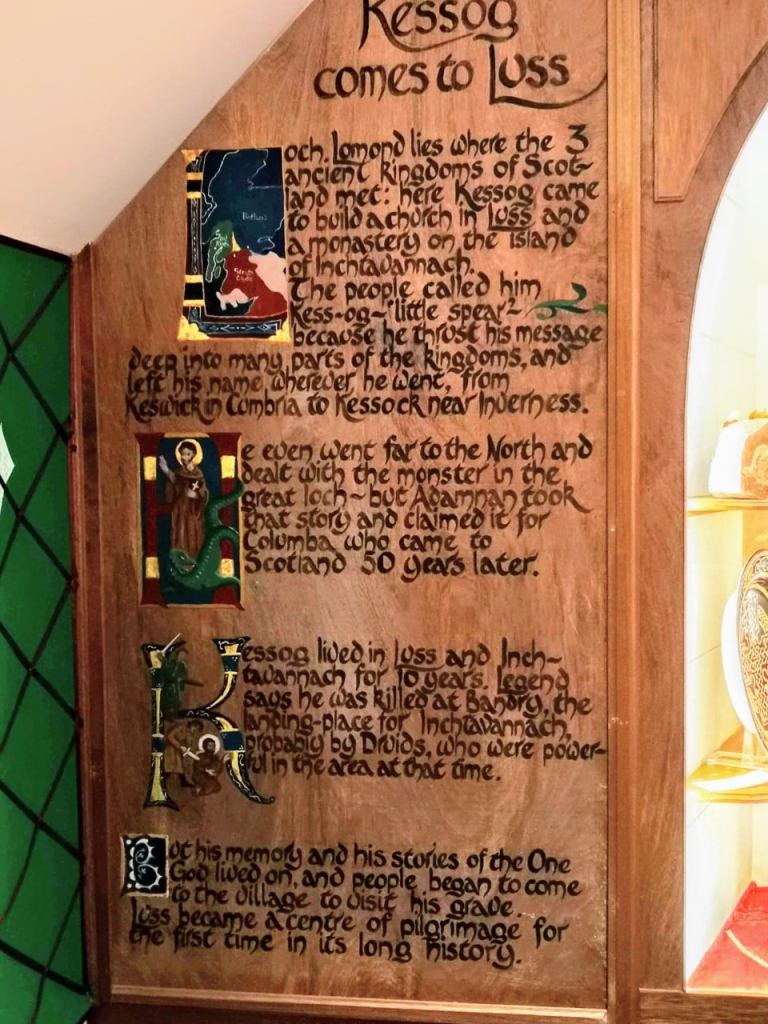 Kessog
comes to Luss
Loch Lomond lies where the 3
ancient kingdoms of Scot-
land met: here Kessog came
to build a church in Luss and
a monastery on the island
of Inchtavannach.
The people called him
Kess-og - "little spear" -
because he thrust his message
deep into many parts of the kingdoms, and
left his name wherever he went, from
Keswick in Cumbria to Kessock near Inverness.
He even went far to the North and
dealt with the monster in the
great loch ~ but Adamnan took
that story and claimed it for
Columba who came to
Scotland 50 years later.
Kessog lived in Luss and Inch~
tavannach for 10 years. Legend
says he was killed at Bandry, the
landing-place for Inchtavannach,
probably by Druids, who were power-
ful in the area at that time.
But his memory and his stories of the One
God lived on, and people began to come
to the village to visit his grave.
Luss became a centre of pilgrimage for
the first time in its long history.